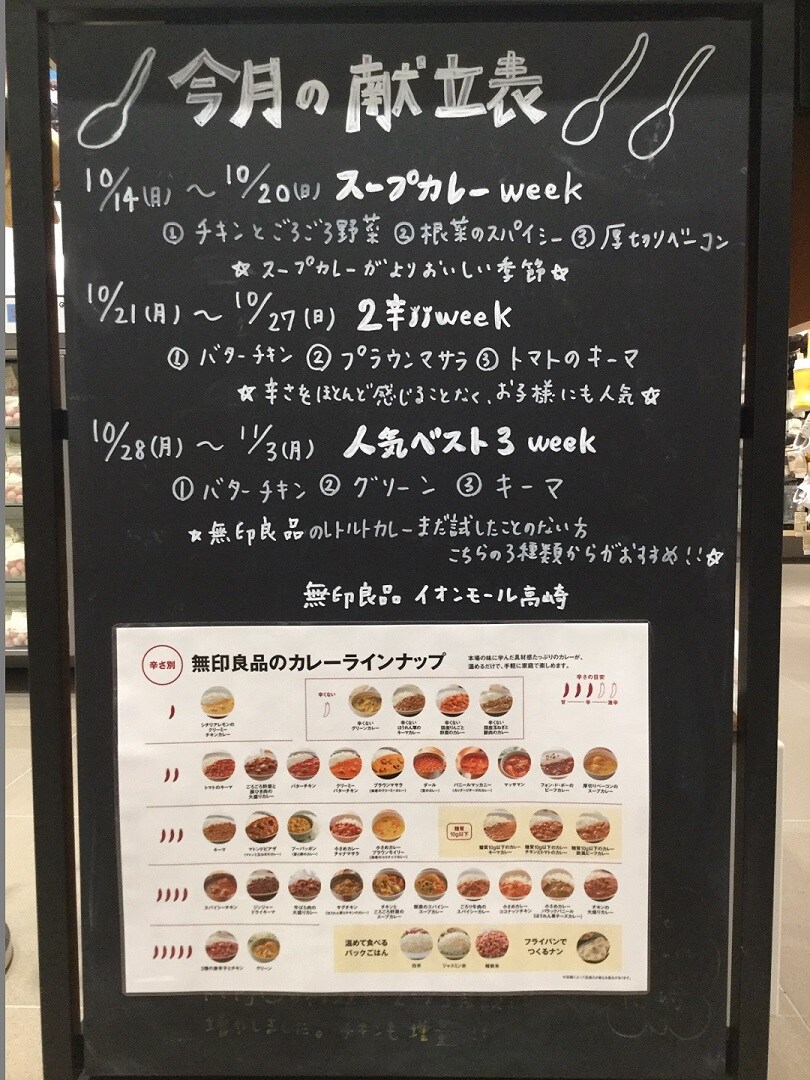 今月の献立表
10/14(月) ～ 10/20(日) スープカレーweek
① チキンとごろごろ野菜 ② 根菜のスパイシー ③ 厚切りベーコン
☆ スープカレーがよりおいしい季節☆
10/21(月) ～ 10/27(日) 2辛week
① バターチキン ② プラウンマサラ ③ トマトのキーマ
☆ 辛さをほとんど感じることなく、お子様にも人気☆
10/28(月) ～ 11/3(月) 人気ベスト3 week
① バターチキン ② グリーン ③ キーマ
★無印良品のレトルトカレーまだ試したことのない方
こちらの3種類からがおすすめ!!☆
無印良品 イオンモール高崎
辛さ別 無印良品のカレーラインナップ
本場の味に学んだ具材感たっぷりのカレーが、
温めるだけで、手軽に家庭で楽しめます。
辛さの目安
甘 辛 激辛
シチリアレモンの
クリーミー
チキンカレー
辛くない
辛くない
グリーンカレー
辛くない
ほうれん草の
キーマカレー
辛くない
国産りんごと
野菜のカレー
辛くない
国産玉ねぎと
豚肉のカレー
トマトのキーマ
ごろごろ野菜と
豚ひき肉の
大盛りカレー
バターチキン
クリーミー
バターチキン
プラウンマサラ
ダール
パニールマッカニー
マッサマン
フォン・ド・ボーの
ビーフカレー
厚切りベーコンの
スープカレー
キーマ
マトンドピアザ
プーパッポン
小さめカレー
チャナマサラ
小さめカレー
プラウンモイリー
糖質
10g以下
糖質10g以下のカレー
キーマカレー
糖質10g以下のカレー
チキンとトマトのカレー
糖質10g以下のカレー
スパイシーチキン
ジンジャー
ドライキーマ
牛ばら肉の
大盛りカレー
サグチキン
チキンと
ごろごろ野菜の
スープカレー
根菜のスパイシー
スープカレー
ごろり牛肉の
スパイシーカレー
小さめカレー
ココナッツチキン
小さめカレー
パラックパニール
チキンの
大盛りカレー
3種の唐辛子とチキン
グリーン
温めて食べる
パックごはん
白米
ジャスミン米
フライパンで
つくるナン
増やしました。チキンも増量!!